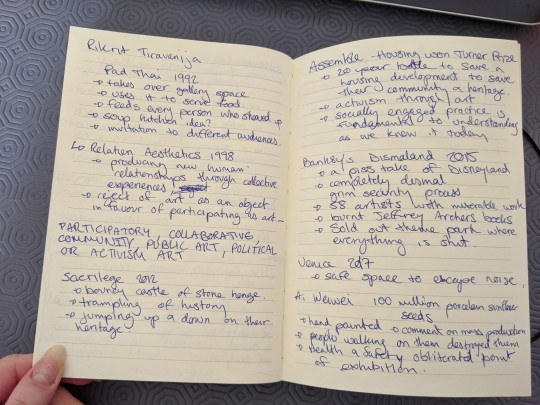 Rikrit Tiravenija
Pad Thai 1992
→ takes over gallery space
→ uses it to serve food
→ feeds every person who showed up
→ soup kitchen idea?
→ invitation to different audiences.
↳ Relation Aesthetics 1998
→ producing new human
relationships through collective
experiences
→ reject of art as an object
in favour of participating as art
PARTICIPATORY, COLLABORATIVE,
COMMUNITY, PUBLIC ART, POLITICAL
OR ACTIVISM ART
Sacrilege 2012
→ bouncy castle of stone henge.
→ trampling of history
→ jumping up & down on their
heritage.
Assemble - Housing won Turner Prize
→ 20 year battle to save a
housing development to save
their community & heritage.
→ activism through art
→ socially engaged practice is
fundamental to understanding
as we know it today
Banksy's Dismaland 2015
→ a piss take of Disneyland
→ completely dismal
grim security process
→ 58 artists with miserable work
→ burnt Jeffrey Archers books
→ Sold out theme park where
everything is shut.
Venice 2017
→ safe space to escape noise.
Ai Weiwei 100 million porcelain sunflower
seeds
→ hand painted → comment on mass production
→ people walking on them destroyed them
→ health & safety obliterated point
of exhibition.